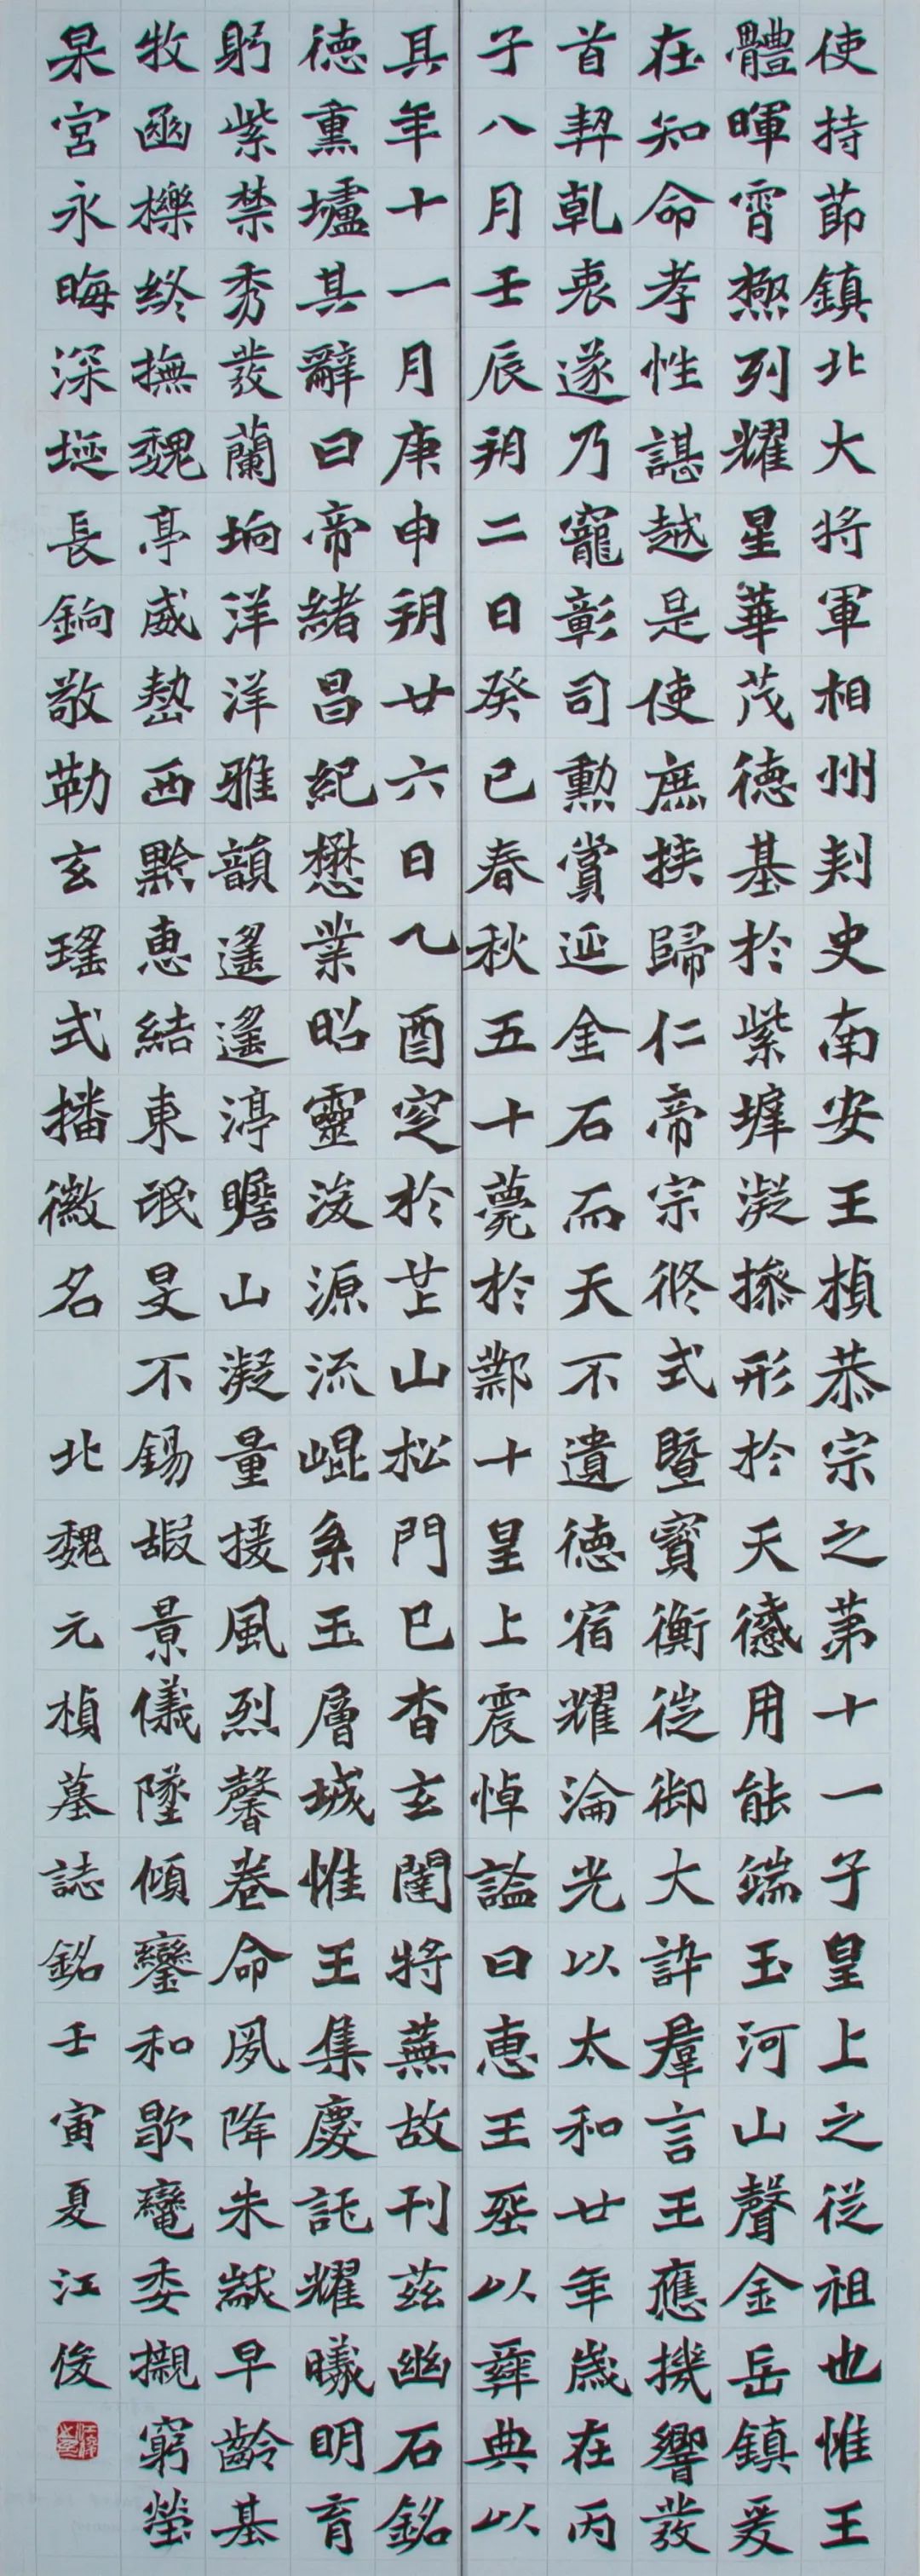 使持節鎮北大將軍相州刾史南安王楨恭宗之第十一子皇上之從祖也惟王
體暉霄極列耀星華茂德基於紫墀凝操形於天感用能端玉河山聲金岳鎮爰
在知命孝性諶越是使庶族歸仁帝宗攸式暨寳衡徙御大訓羣言王應機響發
首契乹衷遂乃寵彰司勳賞延金石而天不遺德宿耀淪光以太和廿年歲在丙
子八月壬辰朔二日癸巳春秋五十薨於鄴十皇上震悼諡曰惠王塟以彝典以
其年十一月庚申朔廿六日乙酉窆於芒山松門已杳玄闥將蕪故刊茲幽石銘
德熏壚其辭曰帝緒昌紀懋業昭靈浚源流崐系玉層城惟王集慶託耀曦明育
躬紫禁秀發蘭坰洋洋雅韻遙遙渟瞻山凝量援風烈馨卷命夙降朱黻早齡基
牧函櫟終撫魏亭威懃西黔惠結東氓旻不錫嘏景儀墜傾鑾和歇鞚委櫬窮塋
杲宮永晦深埏長鉤敬勒玄瑤式播徽名 北魏元楨墓誌銘壬寅夏江俊